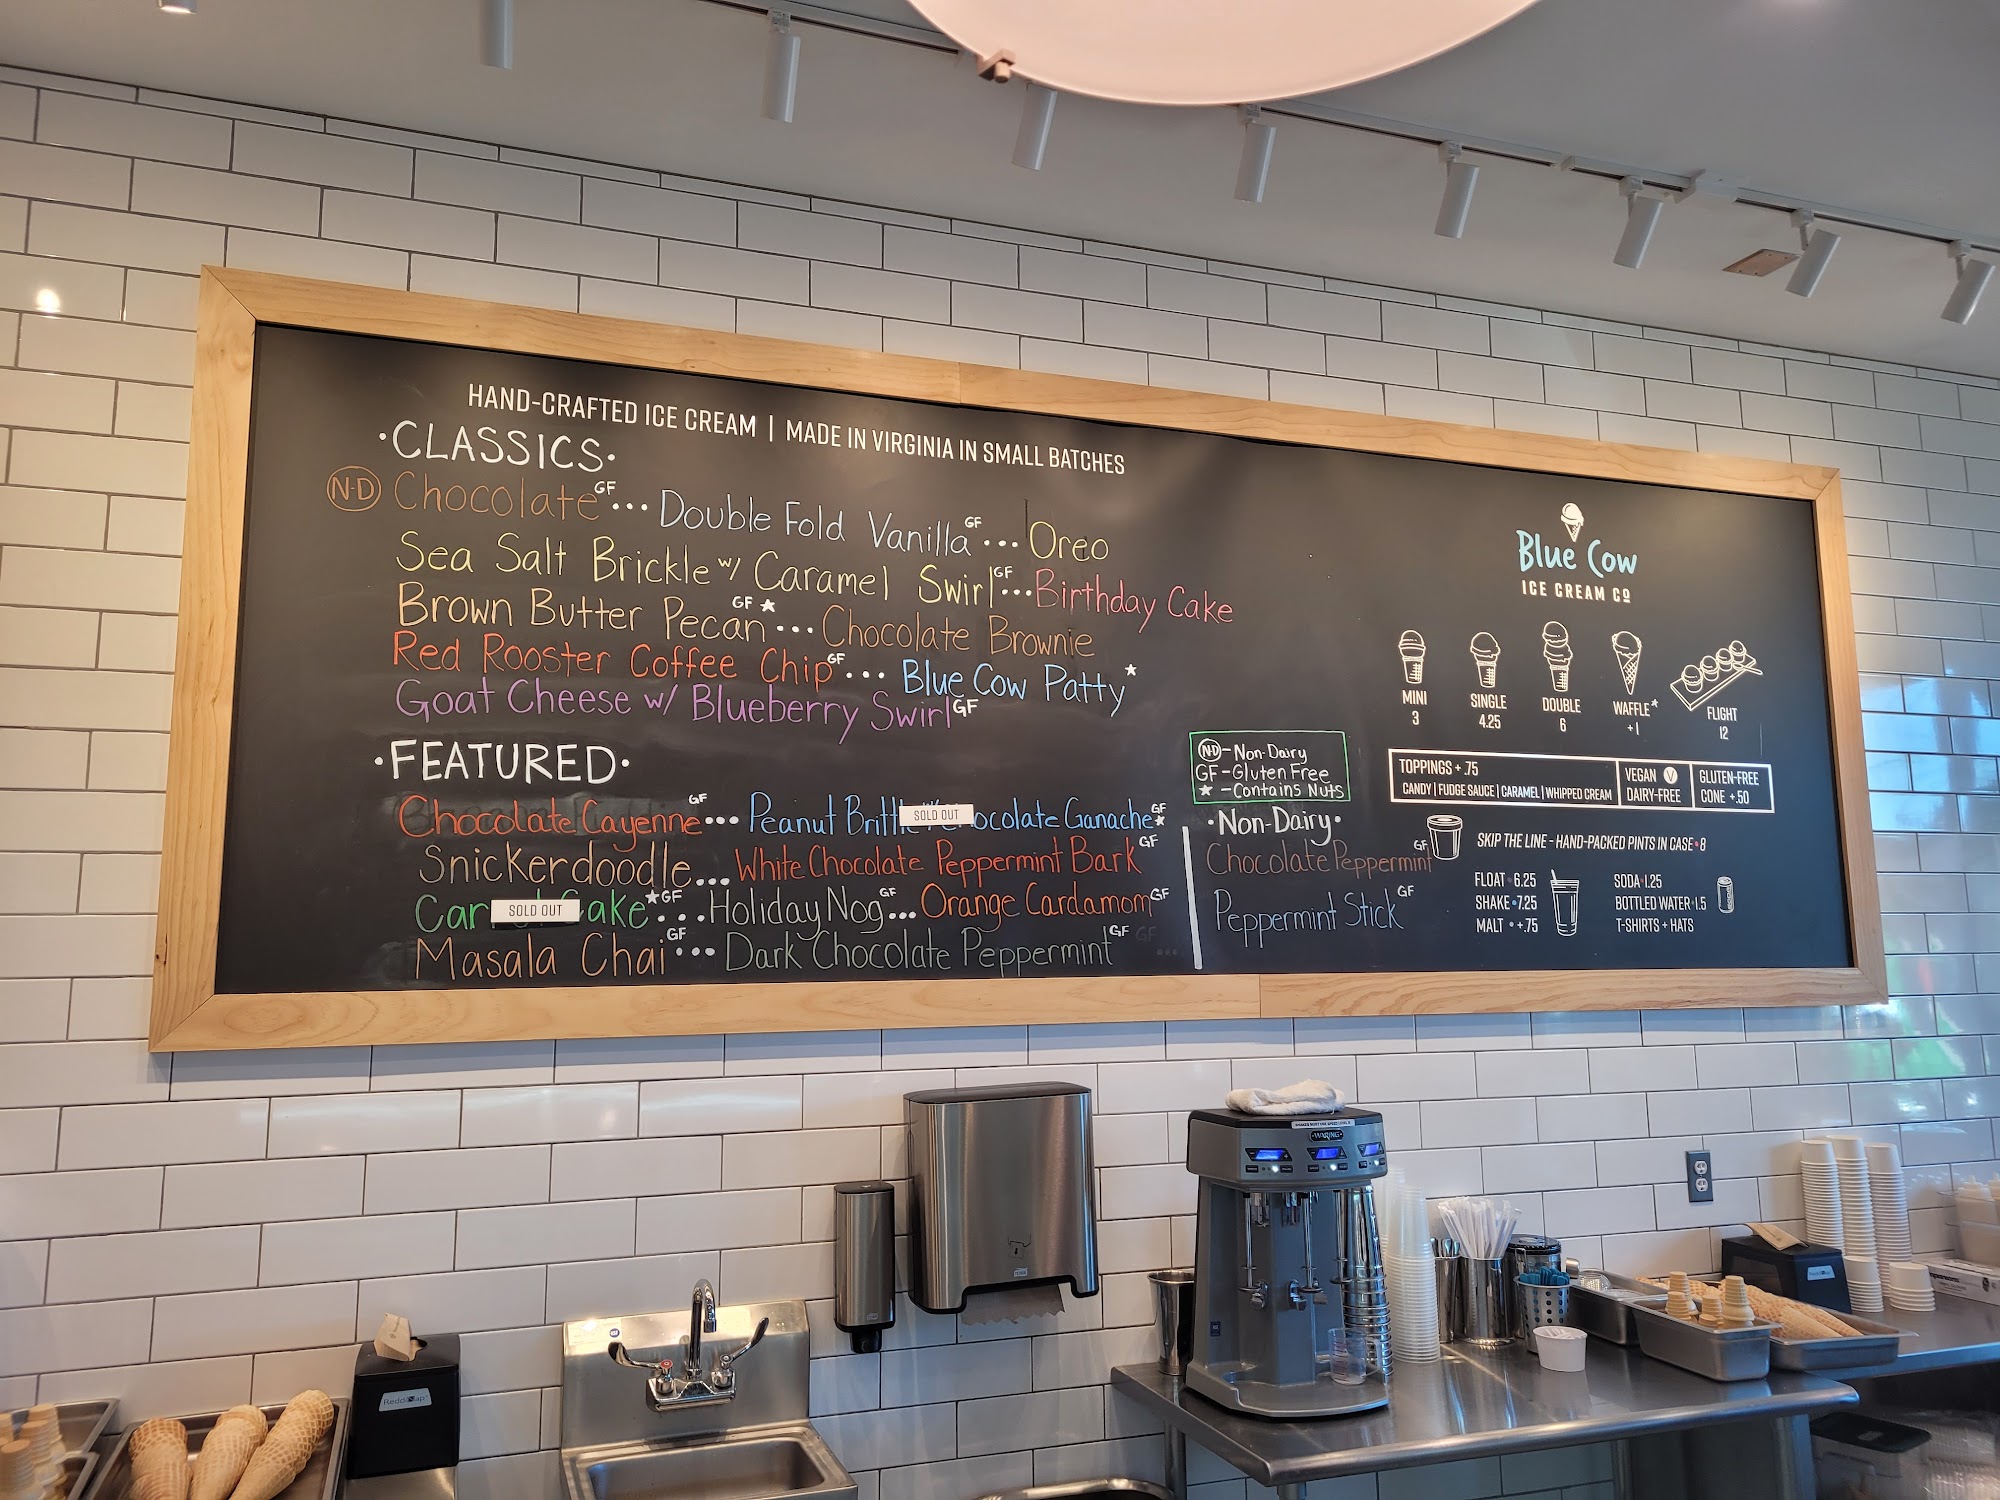 HAND-CRAFTED ICE CREAM | MADE IN VIRGINIA IN SMALL BATCHES
·CLASSICS·
N·D Chocolate GF ... Double Fold Vanilla GF ... Oreo
Sea Salt Brickle w/ Caramel Swirl GF ... Birthday Cake
Brown Butter Pecan GF ★ ... Chocolate Brownie
Red Rooster Coffee Chip GF ... Blue Cow Patty ★
Goat Cheese w/ Blueberry Swirl GF
·FEATURED·
Chocolate Cayenne GF ... Peanut Brittle SOLD OUT ocolate Ganache GF ★
Snickerdoodle ... White Chocolate Peppermint Bark GF
Car SOLD OUT ake ★ GF ... Holiday Nog GF ... Orange Cardamom GF
Masala Chai GF ... Dark Chocolate Peppermint GF
ND – Non-Dairy
GF – Gluten Free
★ – Contains Nuts
·Non-Dairy·
Chocolate Peppermint GF
Peppermint Stick GF
Blue Cow
ICE CREAM CO
MINI
3
SINGLE
4.25
DOUBLE
6
WAFFLE*
+1
FLIGHT
12
TOPPINGS + .75
CANDY | FUDGE SAUCE | CARAMEL | WHIPPED CREAM
VEGAN V
DAIRY-FREE
GLUTEN-FREE
CONE +.50
SKIP THE LINE - HAND-PACKED PINTS IN CASE • 8
FLOAT • 6.25
SHAKE • 7.25
MALT • +.75
SODA • 1.25
BOTTLED WATER • 1.5
T-SHIRTS + HATS
WARING